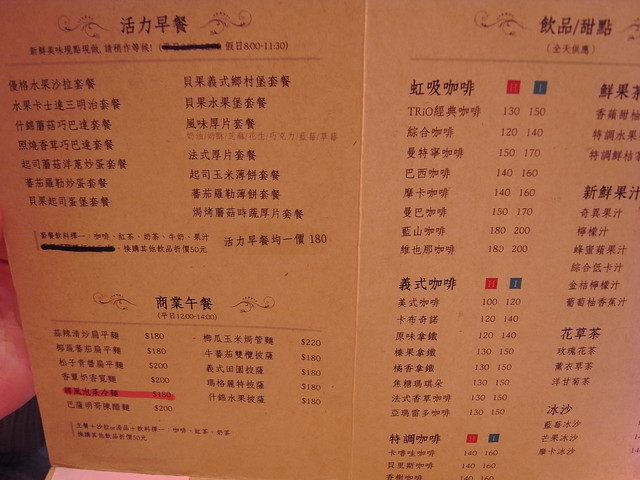 活力早餐
新鮮美味現點現做,請稍作等候! 假日8:00-11:30)
優格水果沙拉套餐
水果卡士達三明治套餐
什錦蘑菇巧巴達套餐
照燒香茸巧巴達套餐
起司蘑菇洋蔥炒蛋套餐
蕃茄羅勒炒蛋套餐
貝果起司蛋堡套餐
貝果義式鄉村堡套餐
貝果水果堡套餐
風味厚片套餐
奶油/奶酥/芝麻/花生/巧克力/藍莓/草莓
法式厚片套餐
起司玉米薄餅套餐
蕃茄羅勒薄餅套餐
焗烤蘑菇時蔬厚片套餐
套餐飲料擇一:咖啡、紅茶、奶茶、牛奶、果汁
換購其他飲品折價50元
活力早餐均一價 180
商業午餐
(平日12:00-14:00)
蒜辣清炒扁平麵 $180
椰蔬蕃茄扁平麵 $180
松子青醬扁平麵 $200
香蕈奶香寬麵 $200
$180
巴薩明哥陳醋麵 $200
櫛瓜玉米焗管麵 $220
牛蕃茄雙欖披薩 $180
義式田園披薩 $180
瑪格麗特披薩 $180
什錦水果披薩 $180
主餐+沙拉or湯品+飲料擇一:咖啡、紅茶、奶茶
換購其他飲品折價50元
飲品/甜點
(全天供應)
虹吸咖啡 H I
TRiO經典咖啡 130 150
綜合咖啡 120 140
曼特寧咖啡 150 170
巴西咖啡 140 160
摩卡咖啡 140 160
曼巴咖啡 150 170
藍山咖啡 180 200
維也那咖啡 180 200
義式咖啡 H I
美式咖啡 100 120
卡布奇諾 120 140
原味拿鐵 120 140
榛果拿鐵 130 150
橘香拿鐵 130 150
焦糖瑪琪朵 130 150
法式香草咖啡 130 150
亞瑪雷多咖啡 130 150
特調咖啡 H I
卡嚕哇咖啡 140 160
貝里斯咖啡 140 160
香榭咖啡 140 160
鮮果茶
香蘋甜柚
特調水果
特調鮮桔
新鮮果汁
奇異果汁
檸檬汁
蜂蜜蘋果汁
綜合低卡汁
金桔檸檬汁
葡萄柚香蕉汁
花草茶
玫瑰花茶
薰衣草茶
洋甘菊茶
冰沙
藍莓冰沙
芒果冰沙
摩卡冰沙